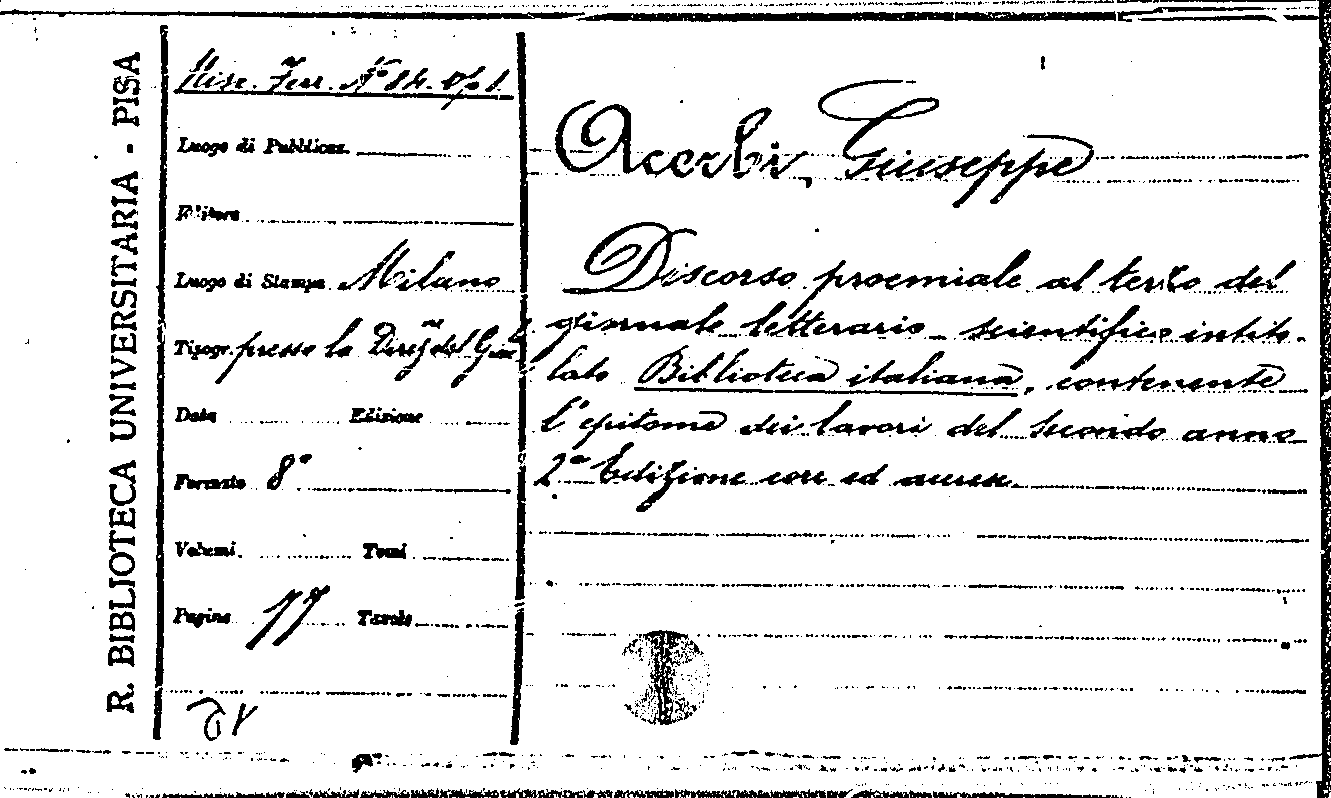 R. BIBLIOTECA UNIVERSITARIA - PISA
Misc. Ferr. N° 84. Op 1.
Luogo di Pubblicaz.
Editore
Luogo di Stampa Milano
Tipogr. presso la Direz.ne del Gior
Data Edizione
Formato 8°
Volumi Tomi
Pagine 77 Tavole
Acerbi, Giuseppe
Discorso proemiale al terzo del
giornale letterario scientifico intito-
lato Biblioteca italiana, contenente
l'epitome dei lavori del secondo anno
2ª Edizione corr ed accresc.